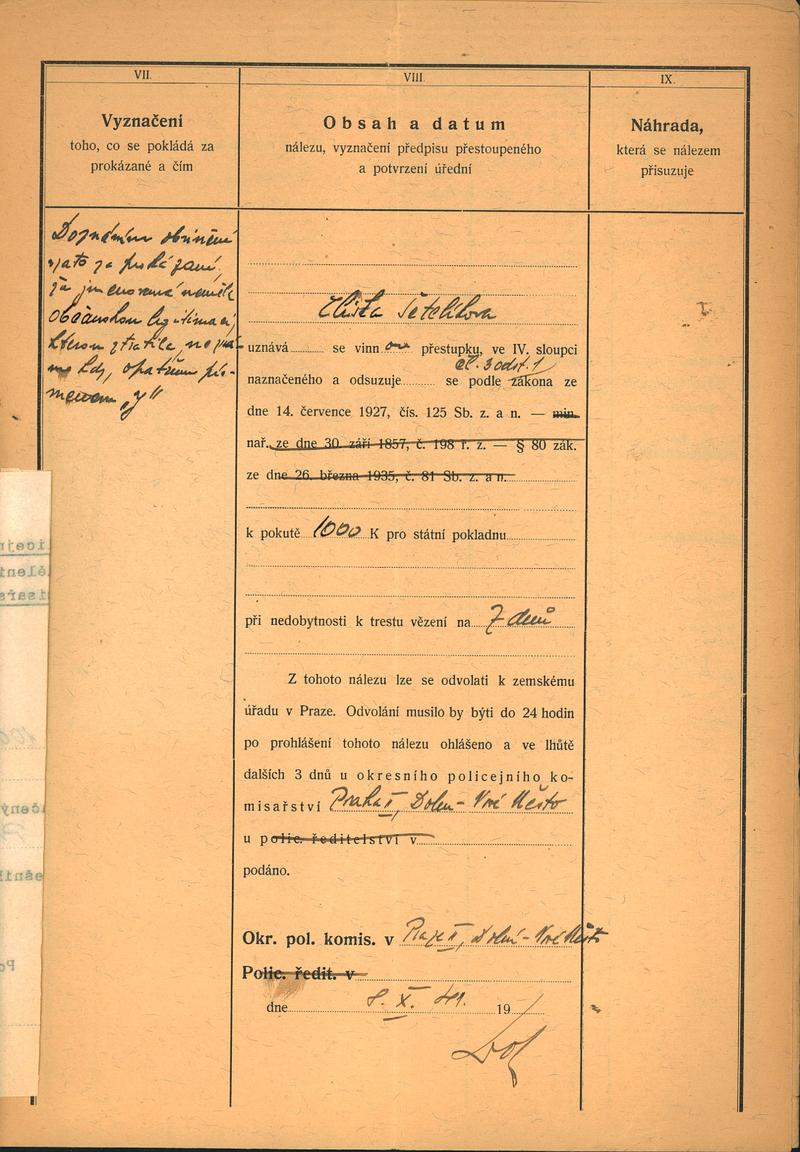 VII.
Vyznačení
toho, co se pokládá za
prokázané a čím
VIII.
Obsah a datum
nálezu, vyznačení předpisu přestoupeného
a potvrzení úřední
IX.
Náhrada,
která se nálezem
přisuzuje
Doznáním obviněné
že jmenovaná neměla
občanskou legitimaci,
kterou ztratila,
"J"
uznává se vinnou přestupku, ve IV. sloupci
čl. 3 odst. 1
naznačeného a odsuzuje se podle zákona ze
dne 14. července 1927, čís. 125 Sb. z. a n. — min.
nař. ze dne 30. září 1857, č. 198 ř. z. — § 80 zák.
ze dne 26. března 1935, č. 81 Sb. z. a n.
k pokutě 1000 K pro státní pokladnu
při nedobytnosti k trestu vězení na 7 dnů
Z tohoto nálezu lze se odvolati k zemskému
úřadu v Praze. Odvolání musilo by býti do 24 hodin
po prohlášení tohoto nálezu ohlášeno a ve lhůtě
dalších 3 dnů u okresního policejního ko-
misařství Praha II, Dolní-Nové Město
u polic. ředitelství v
podáno.
Okr. pol. komis. v Praze II, Dolní-Nové Město
Polic. ředit. v
dne 8. X. 41. 19